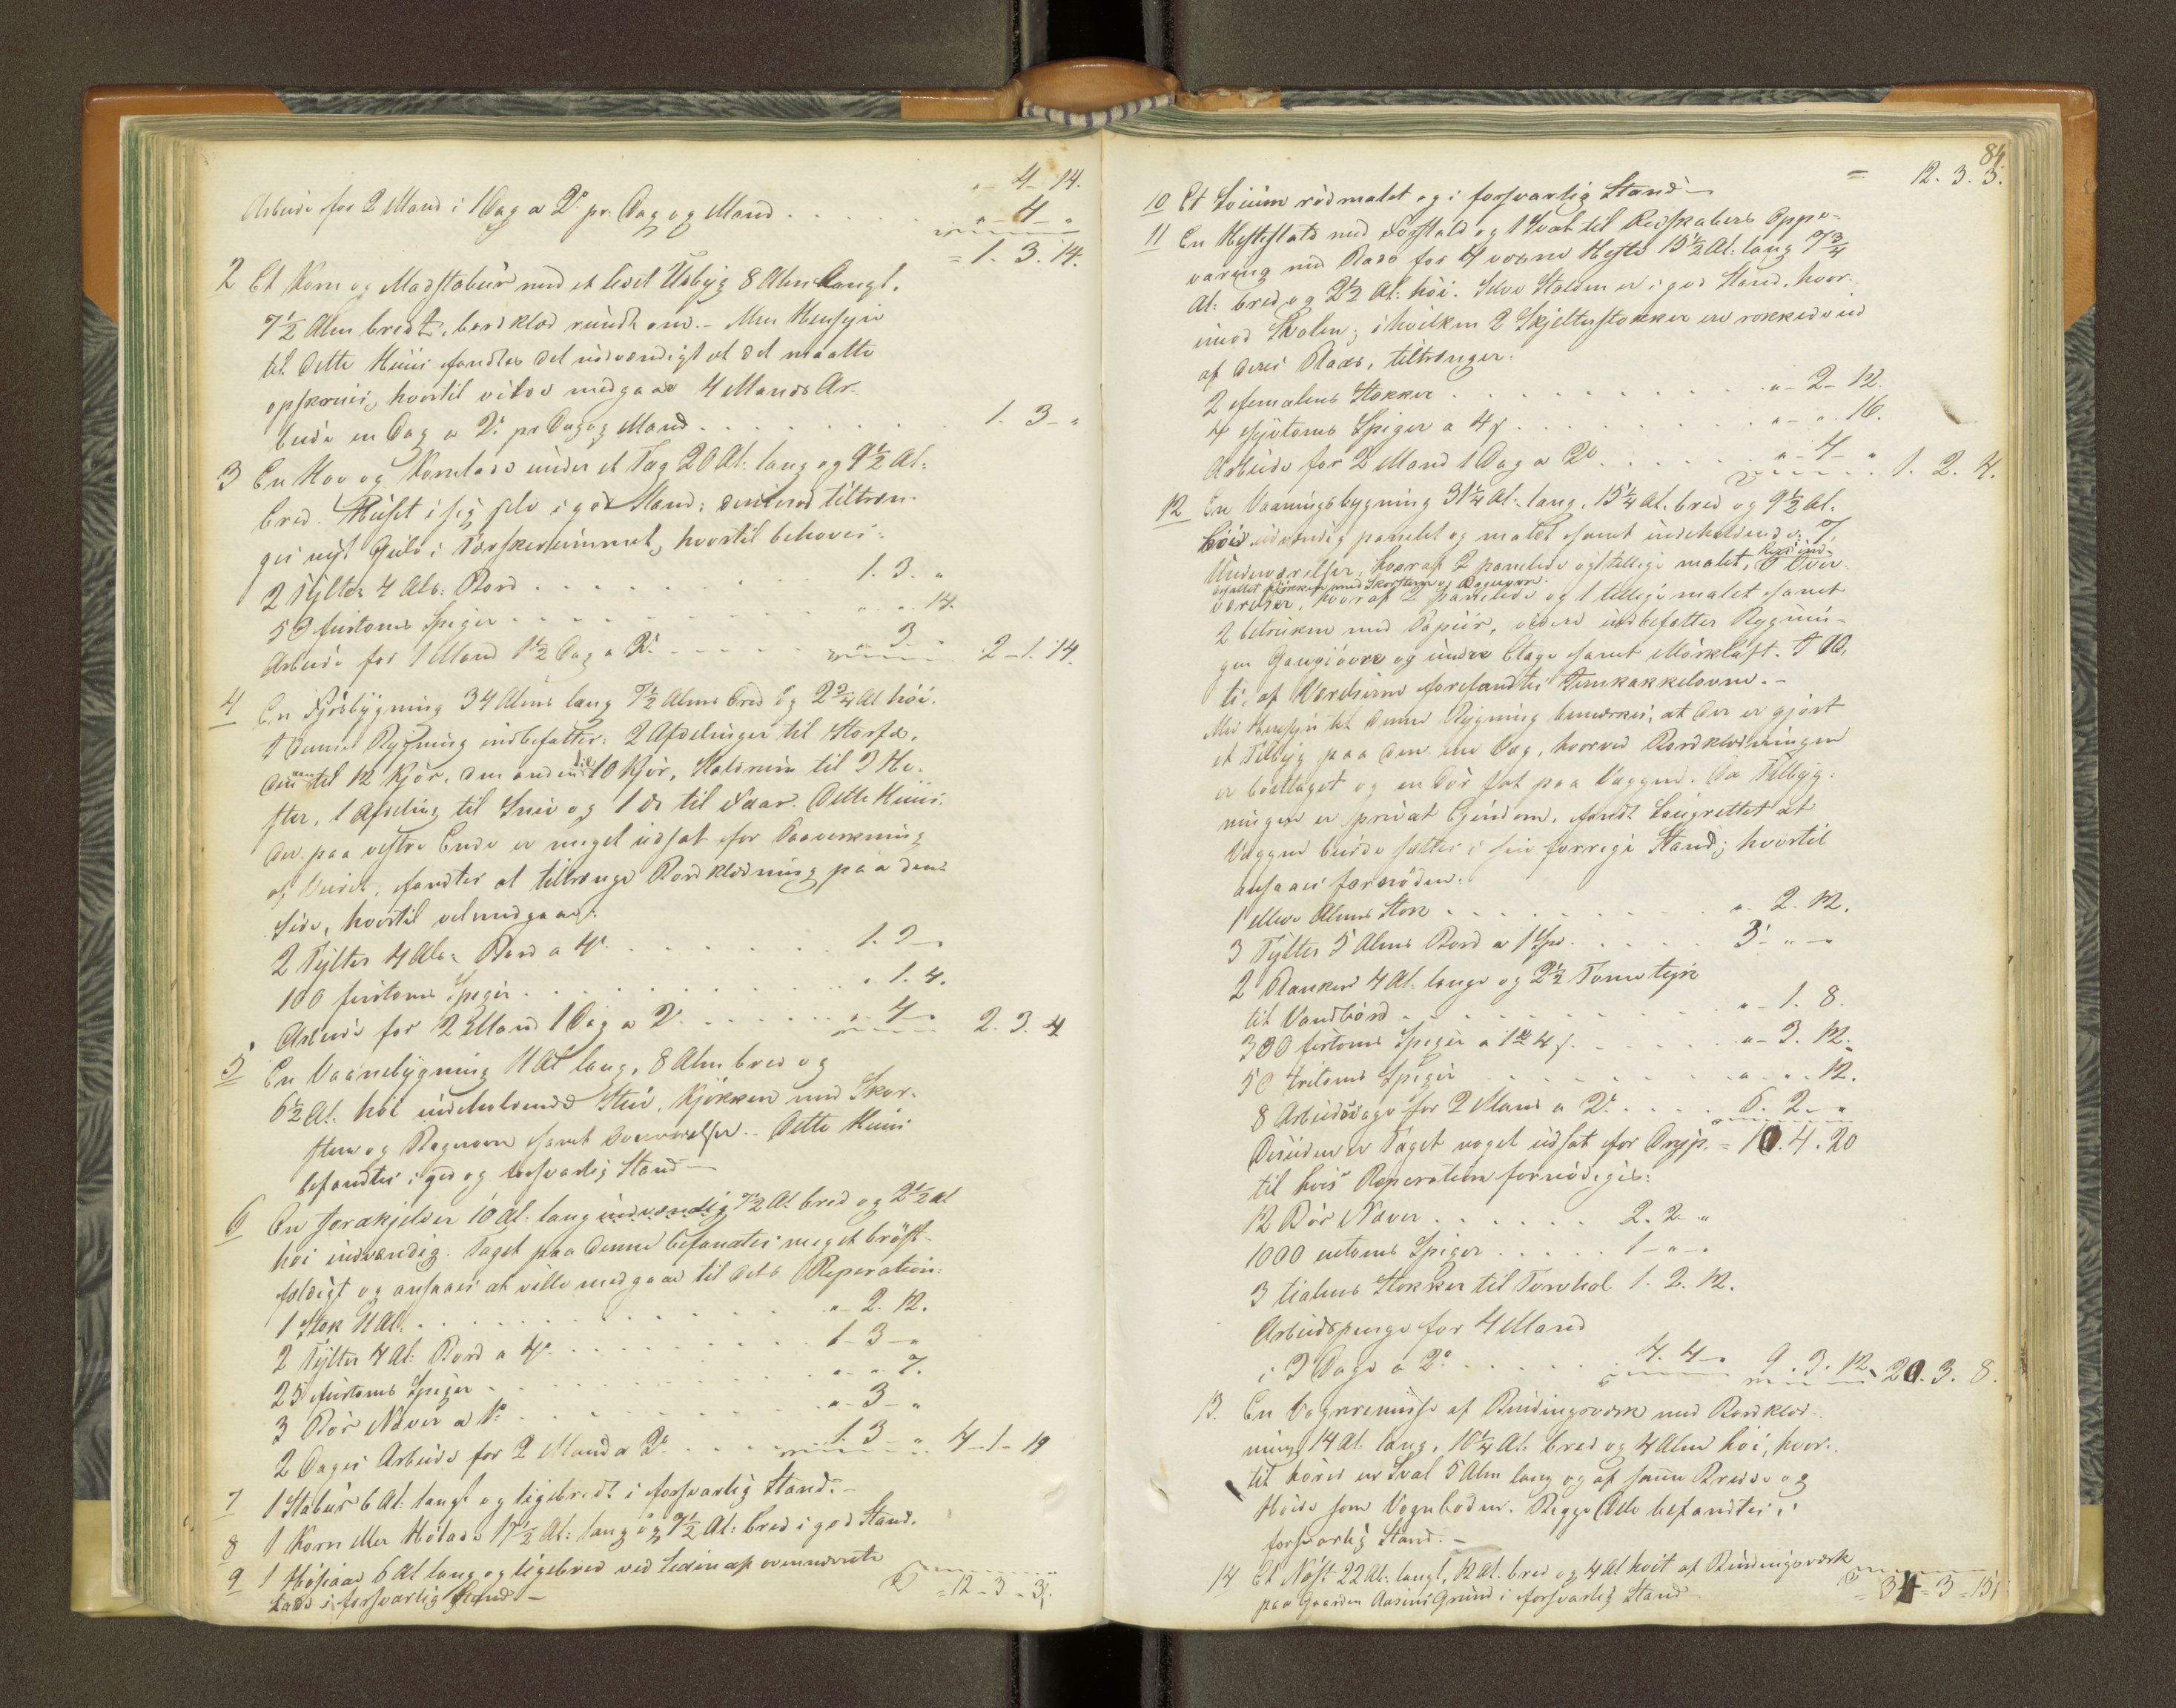 „- 4- 14.
Arbeide for 2 Mand i 1 Dag a 2 pr. Dag og Mand . . . . . „- 4- „
= 1. 3. 14.
2 Et Korn og Madstabur med et lidet Udbyg 8 Alen langt,
7½ Alen bredt, bordklæd rundt om. - Med Hensyn
til dette Huus fandtes det nødvendigt at det maatte
opskrues, hvortil vilde medgaae 4 Mands Ar-
beide en Dag a 2 pr Dag og Mand . . . . . 1. 3- „
3 En Hoe og Kornlade under et Tag 20 Al: lang og 9½ Al:
bred. Huset i sig selv i god Stand; derimod tiltræn-
ges nyt Gulv i Tærskerummet, hvortil behøves:
2 Tylter 4 Als: Bord . . . . . 1. 3. „
50 firtoms Spiger . . . . . „ „ 14.
Arbeide for 1 Mand 1½ Dag a 2 . . . . . „ 3. „ 2-1. 14.
4 En Fjøsbygning 34 Alens lang 7½ Alens bred og 2¾ Al høi.
I denne Bygning indbefatter: 2 Afdelinger til Storfæ,
den ene til 12 Kjør, den anden til 10 Kjør, Staldrum til 2 He-
ster, 1 Afdeling til Sviin og 1 do til Faar. Dette Huus,
der paa vestre Ende er meget udsat for Paavirkning
af Veiret, fandtes at tiltrænge Bordklædning paa den
Side, hvortil vil medgaae:
2 Tylter 4 Als: Bord a 4 . . . . . 1. 3- „
100 firtoms Spiger . . . . . „ 1. 4.
Arbeide for 2 Mand 1 Dag a 2 . . . . . „ 4- „ 2. 3. 4
5 En Vaanebygning 11 Al lang, 8 Alen bred og
6½ Al: høi indeholdende Stue, Kjøkken med Skor-
steen og Bagerovn samt Overværelser. Dette Huus
befandtes i god og forsvarlig Stand -
6 En Jordkjelder 10 Al: lang indvendig 7½ Al bred og 2½ Al
høi indvendig. Taget paa denne befandtes meget brøst-
fældigt og ansaaes at ville medgaae til dets Reperation:
1 Stok 11 Al: . . . . . „- 2. 12.
2 Tylter 4 Al: Bord a 4 . . . . . 1- 3- „
25 firtoms Spiger . . . . . „ „ 7.
3 Bør Næver a 1 . . . . . „- 3- „
2 Dages Arbeide for 2 Mand a 2 . . . . . 1. 3- „ 4-1-19
7 1 Stabur 6 Al: langt og ligebredt i forsvarlig Stand. -
8 1 Korn eller Hølade 17½ Al: lang og 7½ Al: bred i god Stand.
9 1 Høskaae 6 Al lang og ligebred ved Siden af ovennævnte
Lade i forsvarlig Stand - = 12 - 3 - 3.
84.
= 12. 3. 3.
10 Et Lohuus rødmalet og i forsvarlig Stand -
11 En Hestestald med Forstald og 1 Sval til Redskabers Oppe-
varing med Plads for 4 voxne Heste 15½ Al: lang 7¾
Al: bred og 2½ Al: høi. Selve Stalden er i god Stand, hvor-
imod Svalen, i hvilken 2 Skjeltestokker ere rokkede ud
af deres Plads, tiltrænger:
2 femalens Stokker . . . . . „- 2- 12.
4 syvtoms Spiger a 4 ß . . . . . „- „ 16.
Arbeide for 2 Mand 1 Dag a 2 . . . . . „- 4- „ 1. 2. 4.
12 En Vaaningsbygning 31¼ Al: lang, 15¼ Al. bred og 9½ Al.
høi udvendig panelet og malet samt indeholdende: 7
Underværelser, hvoraf 2 panelede og 1 tillige malet,
befattet Kjøkken med Skorsteen og Bagerovn.
værelser, hvoraf 2 panelede og 1 tillige malet samt
2 betrukne med Papiir, videre indbefatter Bygnin-
gen Gangiøvre og undre Etage samt Mørkloft. I
te; af Værelserne forefandtes Jernkakkelovne. -
Med Hensyn til denne Bygning bemærkes, at der er gjort
et Tilbyg paa den ene Væg, hvorved Bordklædningen
er borttaget og en Dør sat paa Væggen. Da Tilbyg-
ningen er privat Eiendom, fandt Laugrettet at
Væggen burde sættes i sin forrige Stand; hvortil
ansaaes fornøden:
1 elleve Alens Stok . . . . . „ 2. 12.
3 Tylter 5 Alens Bord a 1 Spd. . . . . 3- „ - „
2 Planker 4 Al. lange og 2½ Tomme tyk
til Vandbord . . . . . „- 1. 8.
300 firtoms Spiger a 1 4 ß. . . . . „- 3. 12.
50 tretoms Spiger . . . . . „ „ 12.
8 Arbeidsdage for 2 Mand a 2 . . . . 6. 2 - „
Desuden er Taget noget udsat for Dryp, = 10. 4. 20
til hvis Reperation fornødiges:
12 Bør Næver . . . . . 2. 2- „
1000 entoms Spiger . . . . . 1 - „ - „
3 tialens Stokker til Torvhol 1. 2. 12.
Arbeidspenge for 4 Mand
i 3 Dage a 2 . . . . . 4. 4- „ 9. 3. 12. 20. 3. 8.
13. En Vognremisse af Bindingsværk med Bordklæd-
ning 14 Al. lang, 10¼ Al. bred og 4 Alen høi, hvor-
til hører en Sval 5 Alen lang og af samme Bredde og
Høide som Vognboden. Begge Dele befandtes i
forsvarlig Stand. -
14 Et Nøst 22 Al: langt, 12 Al. bred og 4 Al høit af Bindingsværk
paa Gaarden Aasens Grund i forsvarlig Stand = 34 - 3 - 15